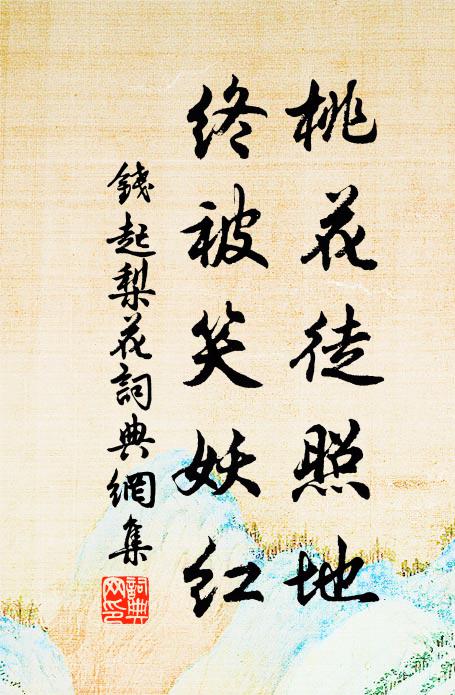 桃花徒照地
终被笑妖红
錢起梨花詞典網集
詞典网印